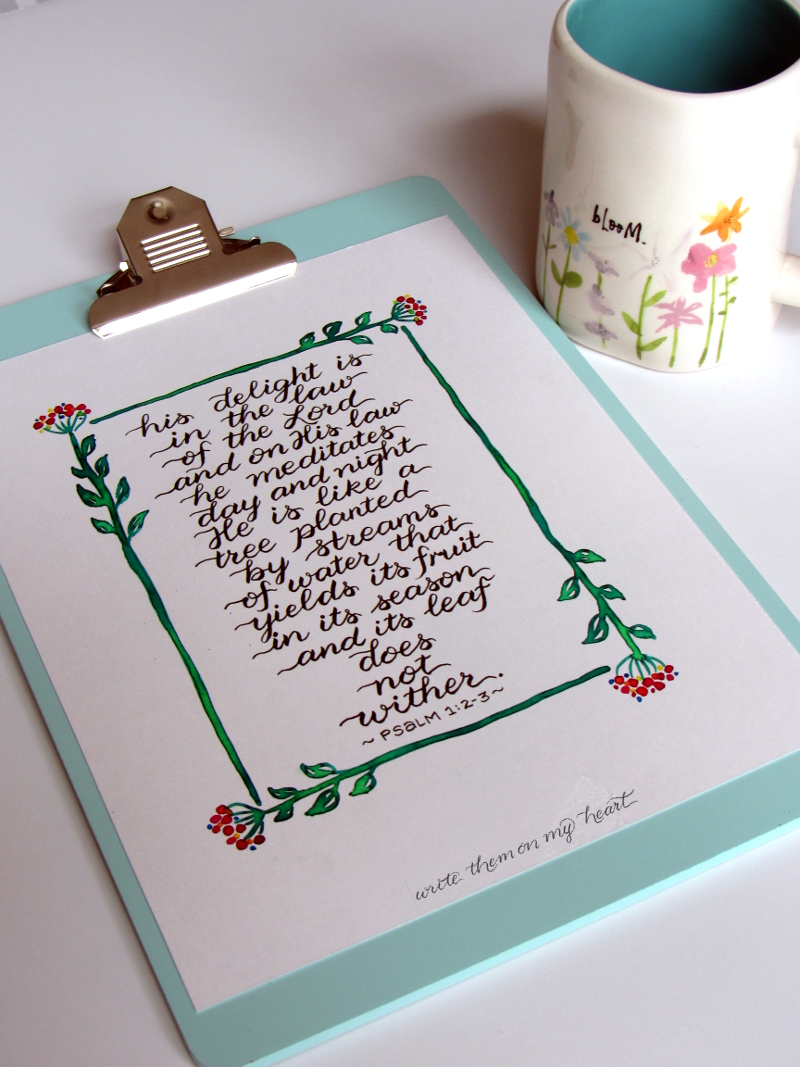 his delight is
in the law
of the Lord
and on His law
he meditates
day and night
He is like a
tree planted
by streams
of water that
yields its fruit
in its season
and its leaf
does
not
wither.
~ PSALM 1:2-3 ~
write them on my heart
bLooM.